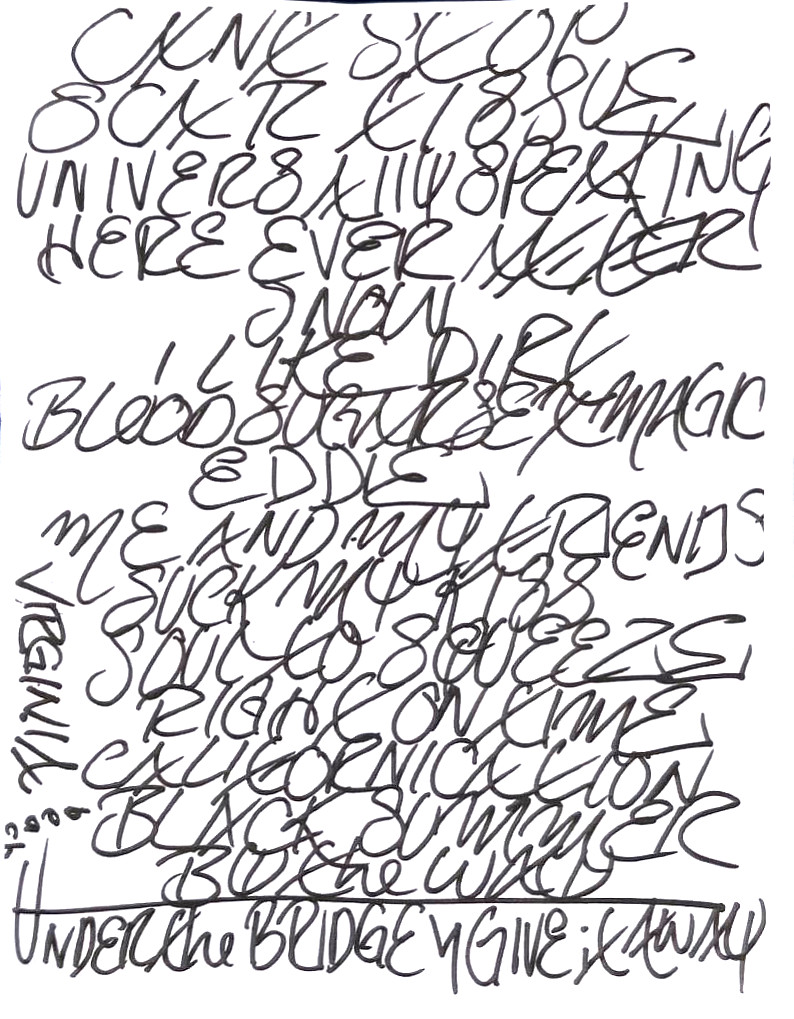 CANT STOP
SCAR TISSUE
UNIVERSALLY SPEAKING
HERE EVER AFTER
SNOW
I LIKE DIRT
BLOOD SUGAR SEX MAGIC
EDDIE
ME AND MY FRIENDS
SUCK MY KISS
SOUL TO SQUEEZE
RIGHT ON TIME
CALIFORNICATION
BLACK SUMMER
BY the WAY
UNDER the BRIDGE Y GIVE iT AWAY
VIRGINIA
beach